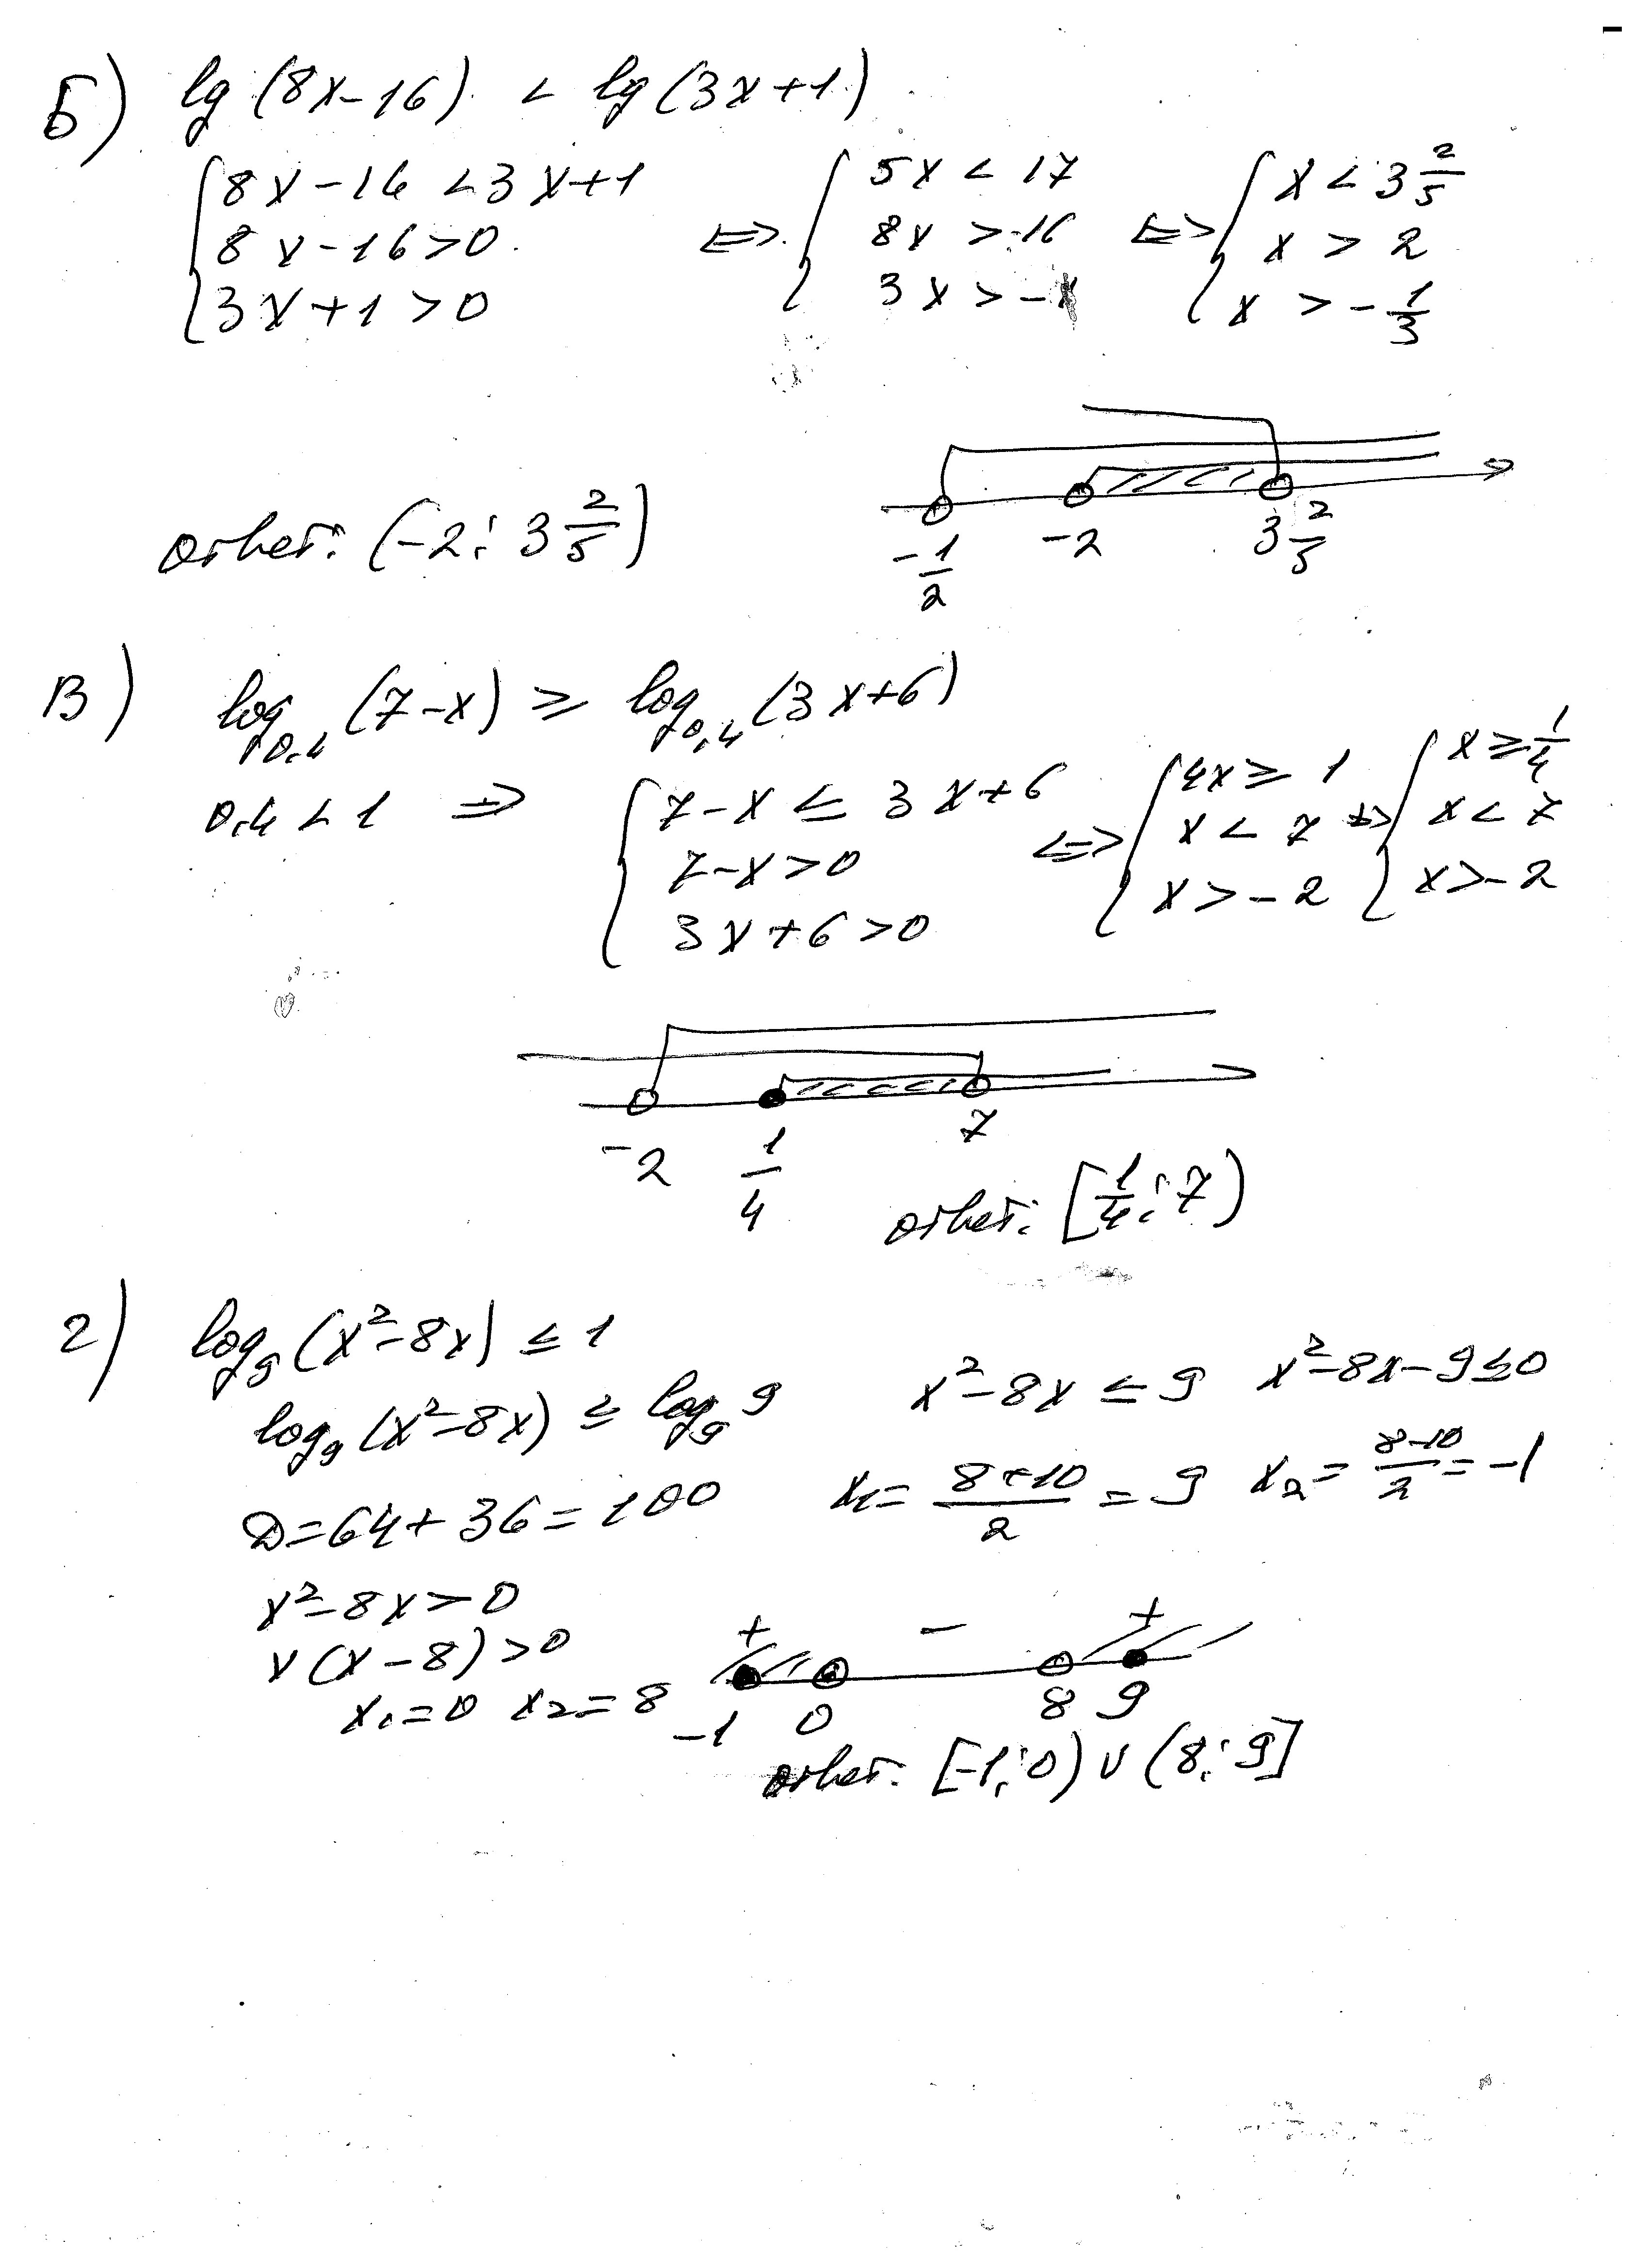 Б) lg (8x-16) < lg (3x+1)
{ 8x-16 < 3x+1 { 5x < 17 { x < 3 2/5
8x-16 > 0 <=> 8x > 16 <=> x > 2
3x+1 > 0 3x > - x > - 1/3
-1/2 -2 3 2/5
ответ: (-2; 3 2/5)
В) log0,4 (7-x) ≥ log0,4 (3x+6)
0,4 < 1 => { 7-x ≤ 3x+6 <=> { 4x ≥ 1 <=> { x ≥ 1/4
7-x > 0 x < 7 x < 7
3x+6 > 0 x > -2 x > -2
-2 1/4 7
ответ: [1/4; 7)
г) log9 (x²-8x) ≤ 1
log9 (x²-8x) ≤ log9 9 x²-8x ≤ 9 x²-8x-9 ≤ 0
D = 64+36 = 100 x1 = (8+10)/2 = 9 x2 = (8-10)/2 = -1
x²-8x > 0
x(x-8) > 0 + - +
x1 = 0 x2 = 8 -1 0 8 9
ответ: [-1; 0) ∪ (8; 9]